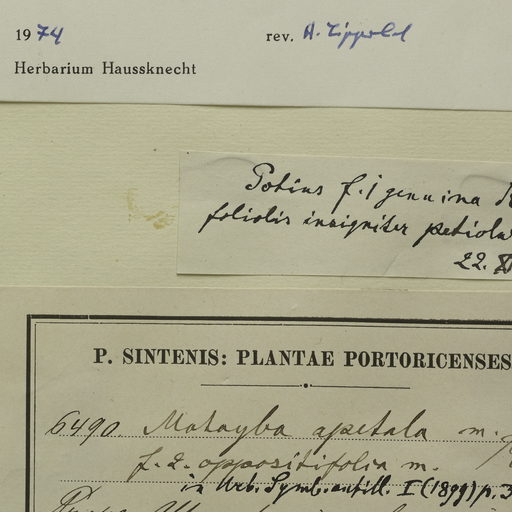 1974 rev. H. Lippold
Herbarium Haussknecht
Potius f. 1 genuina
foliolis insigniter petiola
22. XI
P. SINTENIS: PLANTAE PORTORICENSES
6490. Matayba apetala m.
f. 2. oppositifolia m.
in Urb. Symb. antill. I (1899) p. 3